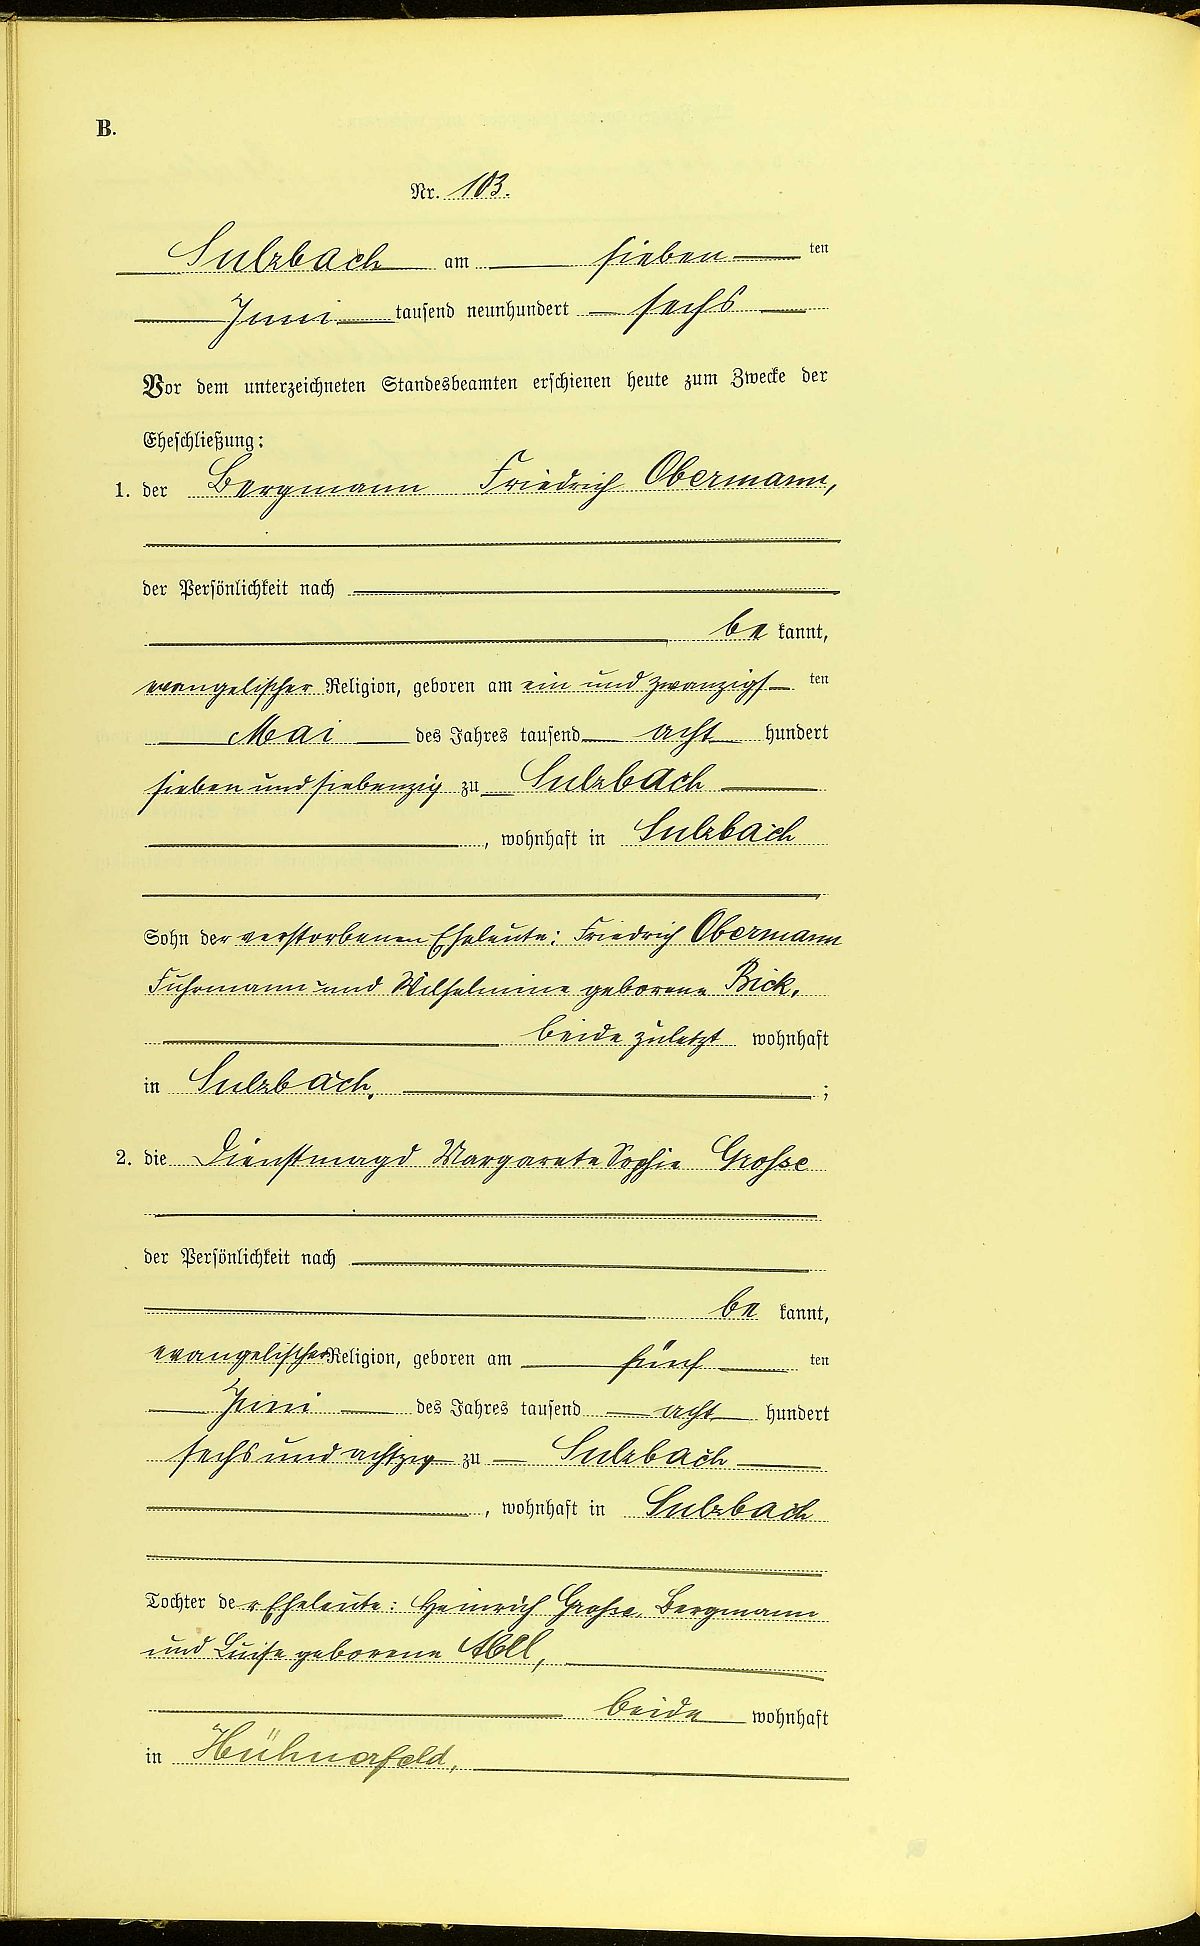 B.
Nr. 103.
Sulzbach am sieben ten
Juni tausend neunhundert sechs
Vor dem unterzeichneten Standesbeamten erschienen heute zum Zwecke der
Eheschließung:
1. der Bergmann Friedrich Obermann,
der Persönlichkeit nach
be kannt,
evangelischer Religion, geboren am ein und zwanzigs ten
Mai des Jahres tausend acht hundert
sieben und siebenzig zu Sulzbach
, wohnhaft in Sulzbach
Sohn der verstorbenen Eheleute: Friedrich Obermann
Fuhrmann und Wilhelmine geborene Bick,
beide zuletzt wohnhaft
in Sulzbach, ;
2. die Dienstmagd Margarete Sophie Grosse
der Persönlichkeit nach
be kannt,
evangelischer Religion, geboren am fünf ten
Juni des Jahres tausend acht hundert
sechs und achtzig zu Sulzbach
, wohnhaft in Sulzbach
Tochter der Eheleute: Heinrich Grosse, Bergmann
und Luise geborene Abll,
beide wohnhaft
in Hühnerfeld,